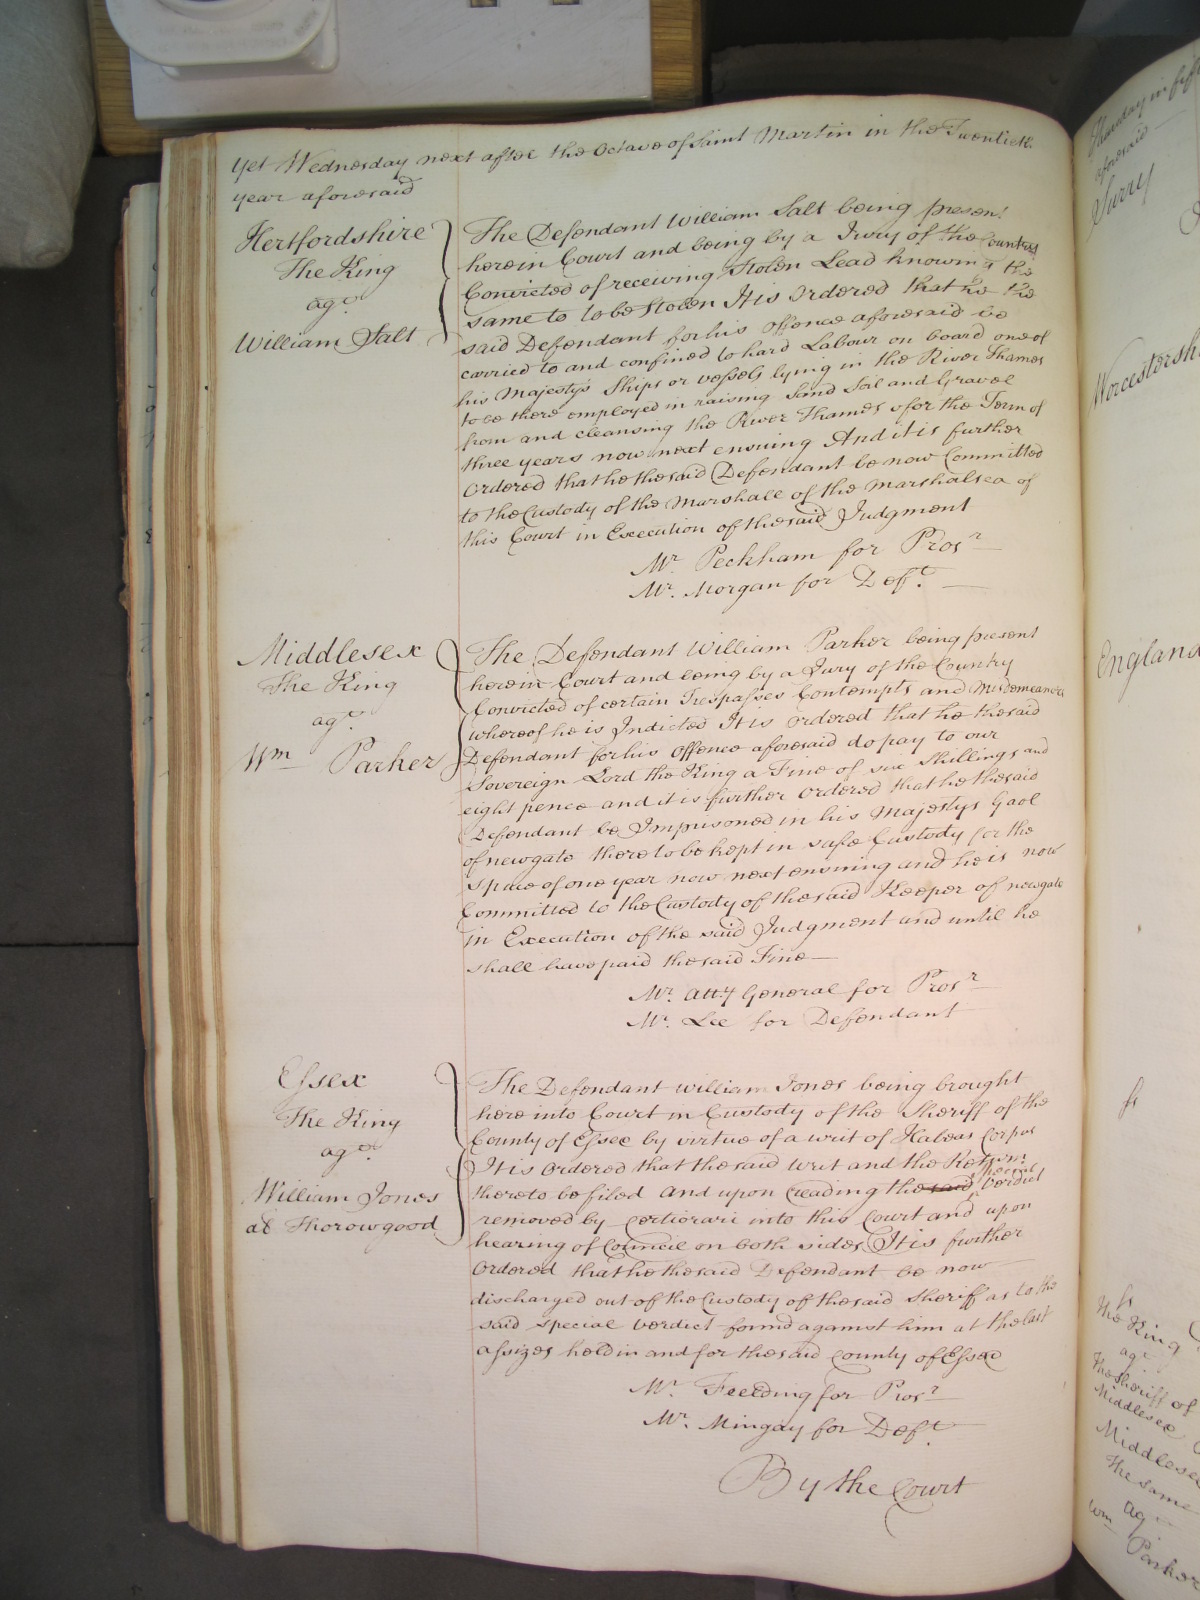 Yet Wednesday next after the Octave of Saint Martin in the Twentieth
year aforesaid
Hertfordshire
The King
agt
William Salt
The Defendant William Salt being present
herein Court and being by a Jury of the Country
Convicted of receiving Stolen Lead knowing the
same to to be Stolen It is ordered that he the
said Defendant for his offence aforesaid be
carried to and confined to hard Labour on board one of
his Majestys Ships or vessels lying in the River Thames
to be there employed in raising Sand Soil and Gravel
from and cleansing the River Thames for the Term of
three years now next ensuing And it is further
ordered that he the said Defendant be now Committed
to the Custody of the Marshall of the Marshalsea of
this Court in Execution of the said Judgment
Mr. Peckham for Prosr
Mr. Morgan for Deft.
Middlesex
The King
agt.
Wm Parker
The Defendant William Parker being present
herein Court and being by a Jury of the Country
Convicted of certain Trespasses Contempts and Misdemeanors
whereof he is Indicted It is ordered that he the said
Defendant for his offence aforesaid do pay to our
Sovereign Lord the King a Fine of six Shillings and
eight pence and it is further ordered that he the said
Defendant be Imprisoned in his Majestys Gaol
of newgate there to be kept in safe Custody for the
space of one year now next ensuing and he is now
Committed to the Custody of the said Keeper of newgate
in Execution of the said Judgment and until he
shall have paid the said Fine
Mr. Atty General for Prosr
Mr. Lee for Defendant
Essex
The King
agt.
William Jones
als Thorowgood
The Defendant William Jones being brought
here into Court in Custody of the Sheriff of the
County of Essex by virtue of a writ of Habeas Corpus
It is ordered that the said writ and the Return
thereto be filed and upon reading the said special verdict
removed by certiorari into this Court and upon
hearing of Council on both sides It is further
ordered that he the said Defendant be now
discharged out of the Custody of the said Sheriff as to the
said special verdict found against him at the last
assizes held in and for the said County of Essex
Mr. Feilding for Prosr
Mr. Mingay for Deft.
By the Court
Thursday in
aforesaid
Surry
Worcestersh
England
The King
agt
The Sheriff of
Middlesex
Middlesex
The same
agt
Wm Parker